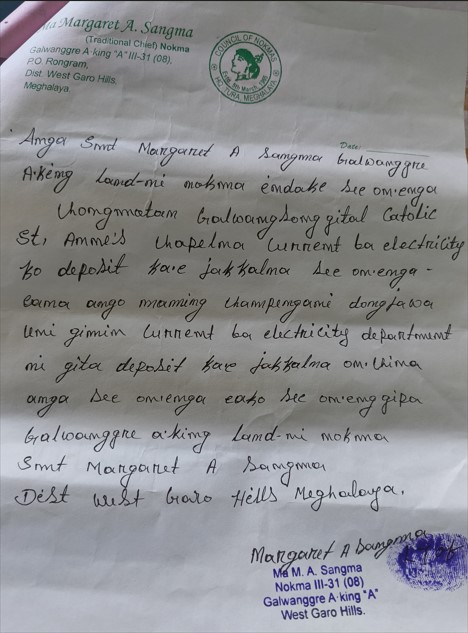 Ma Margaret A. Sangma
(Traditional Chief) Nokma
Galwanggre A·king "A" III-31 (08),
P.O. Rongram,
Dist. West Garo Hills,
Meghalaya.
COUNCIL OF NOKMAS
HQ. TURA, MEGHALAYA
Date:
Anga Smt Margaret A Sangma Galwanggre
A·king Land-mi nokma indake see on·enga
Chongmatam Galwang Songgital Catolic
St, Anne's Chapelna Current ba electricity
ko deposit ka·e jakkalna see on·enga -
eama ango maming Champengami dongjawa
Uni gimin Current ba electricity department
ni gita deposit ka·e jakkalna on·china
anga see on·enga eako see on·enggipa
Galwanggre a·king Land-mi nokma
Smt Margaret A Sangma
Dist West Garo Hills Meghalaya.
Margaret A Sangma
Ma M. A. Sangma
Nokma III-31 (08)
Galwanggre A·king "A"
West Garo Hills.